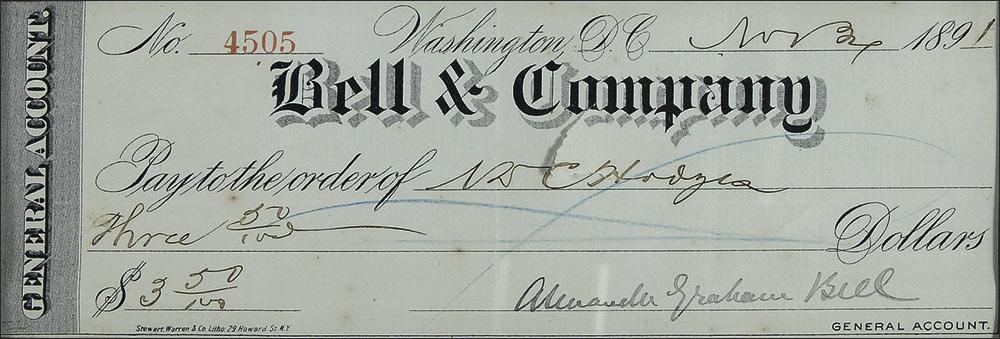 GENERAL ACCOUNT.
No. 4505 Washington, D.C. Nov 3 1891
Bell & Company
Pay to the order of N D C Hodges
Three 50/100 Dollars
$ 3 50/100 Alexander Graham Bell
Stewart, Warren & Co. Litho. 29 Howard St. N.Y. GENERAL ACCOUNT.